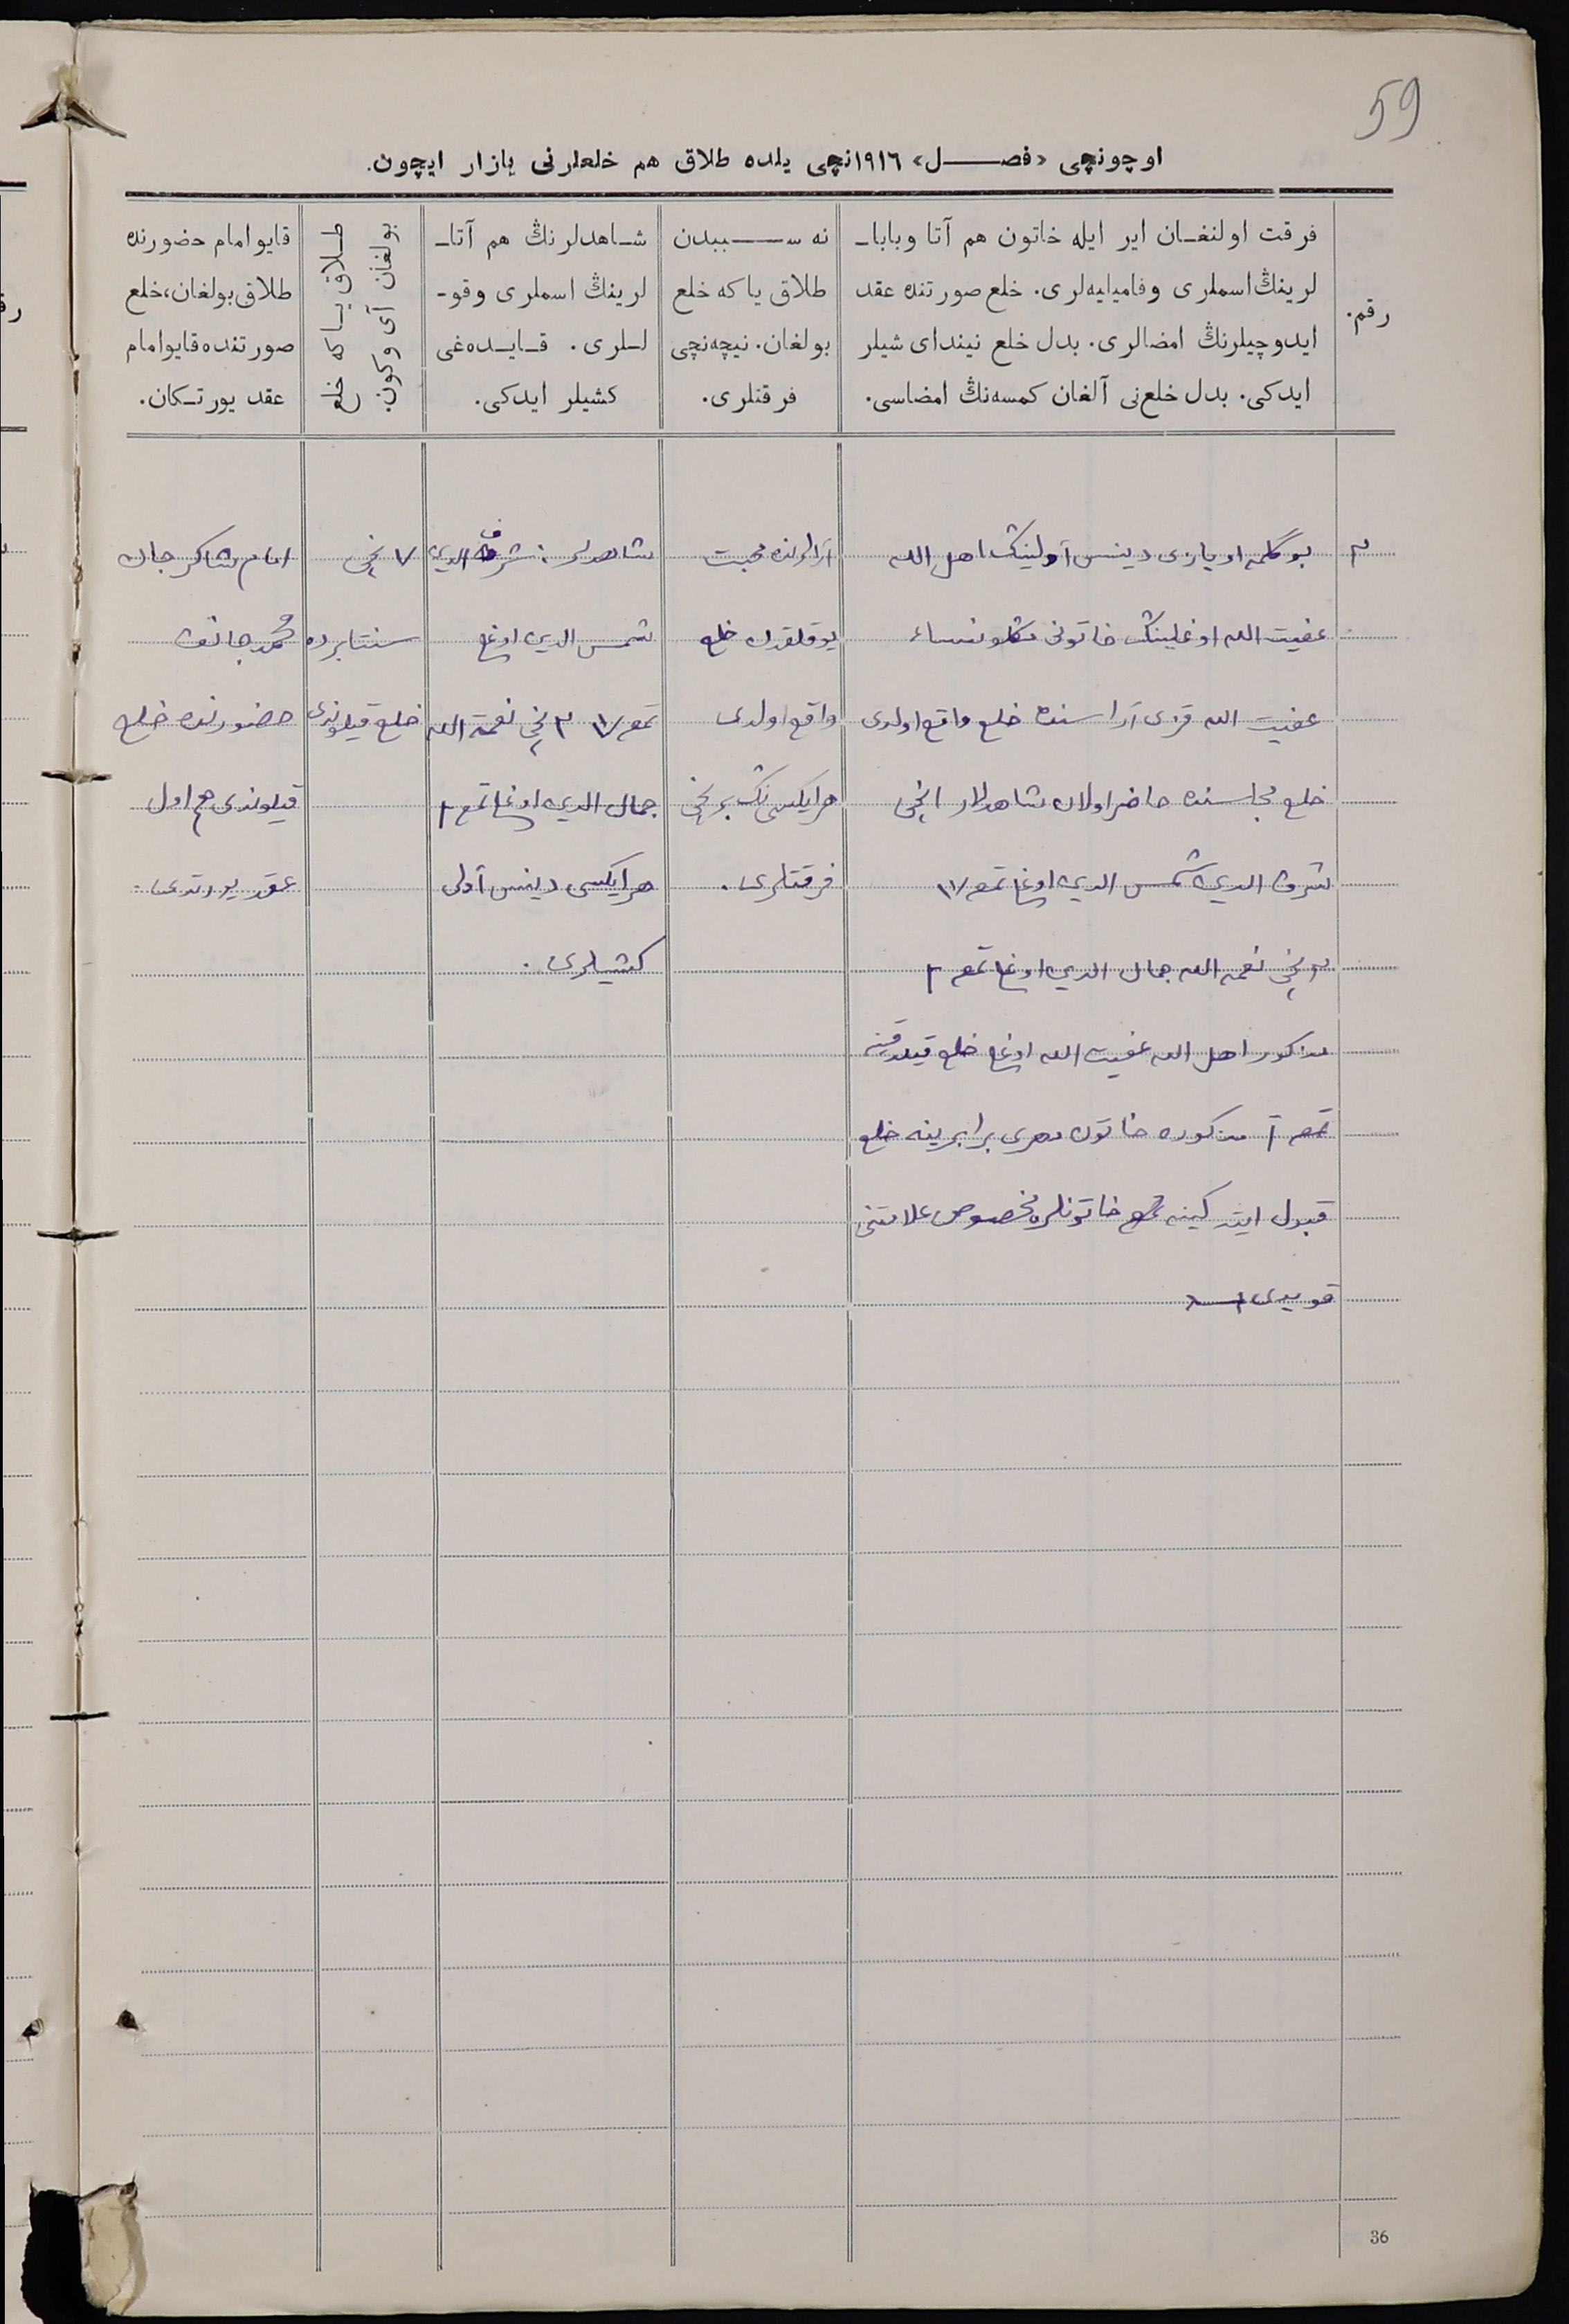 59
اوچونچی «فصل» ١٩١٦نچی یلده طلاق هم خلعلرنی یازار ایچون.
رقم.
فرقت اولنغان ایر ایله خاتون هم آتا وبابا-
لرینڭ اسملری وفامیلیه‌لری. خلع صورتنده عقد
ایدوچیلرنڭ امضالری. بدل خلع نیندای شیلر
ایدکی. بدل خلع‌نی آلغان کمسه‌نڭ امضاسی.
نه سببدن
طلاق یا که خلع
بولغان. نیچه‌نچی
فرقتلری.
شاهدلرنڭ هم آتا-
لرینڭ اسملری وقو-
للری. قایده‌غی
کشیلر ایدکی.
طلاق یا که خلع
بولغان آی و کون.
قایو امام حضورنده
طلاق بولغان، خلع
صورتنده قایو امام
عقد یورتکان.
٢
بوگلمه اویازی دینس آولینڭ اهل الله
عفیت الله اوغلینڭ خاتونی
عفیت الله قزی آراسنده خلع واقع اولدی
خلع مجلسنده حاضر اولان شاهدلار ١نچی
شرف الدین شمس الدین اوغلی تمغ
٢نچی نعمة الله جمال الدین اوغلی تمغ
مذکور اهل الله عفیت الله اوغلی خلع قیلدقینه
تمغ مذکوره خاتون مهری برابرینه خلع
قبول ایتدکینه خاتونلره مخصوص علامتنی
قویدی
آرالرنده محبت
یوقلقدن خلع
واقع اولدی
هر ایکیسی‌نڭ برنچی
فرقتلری.
شاهدلر: شرف الدین
شمس الدین اوغلی
تمغ ٢نچی نعمة الله
جمال الدین اوغلی تمغ
هر ایکیسی دینس آولی
کشیلری.
٧نچی
سنتابرده
خلع قیلوندی
امام شاکرجان
محمدجانف
حضورنده خلع
قیلوندی هم اول
عقد یورتدی.
36